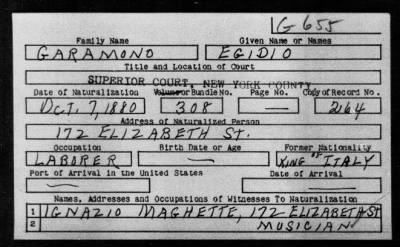 IG 655
Family Name Given Name or Names
GARAMONO EGIDIO
Title and Location of Court
SUPERIOR COURT, NEW YORK COUNTY
Date of Naturalization Volume or Bundle No. Page No. Copy of Record No.
OCT. 7, 1880 308 — 264
Address of Naturalized Person
172 ELIZABETH ST.
Occupation Birth Date or Age Former Nationality
LABORER — KING OF ITALY
Port of Arrival in the United States Date of Arrival
— —
Names, Addresses and Occupations of Witnesses To Naturalization
1 IGNAZIO MAGHETTE, 172 ELIZABETH ST
2 MUSICIAN